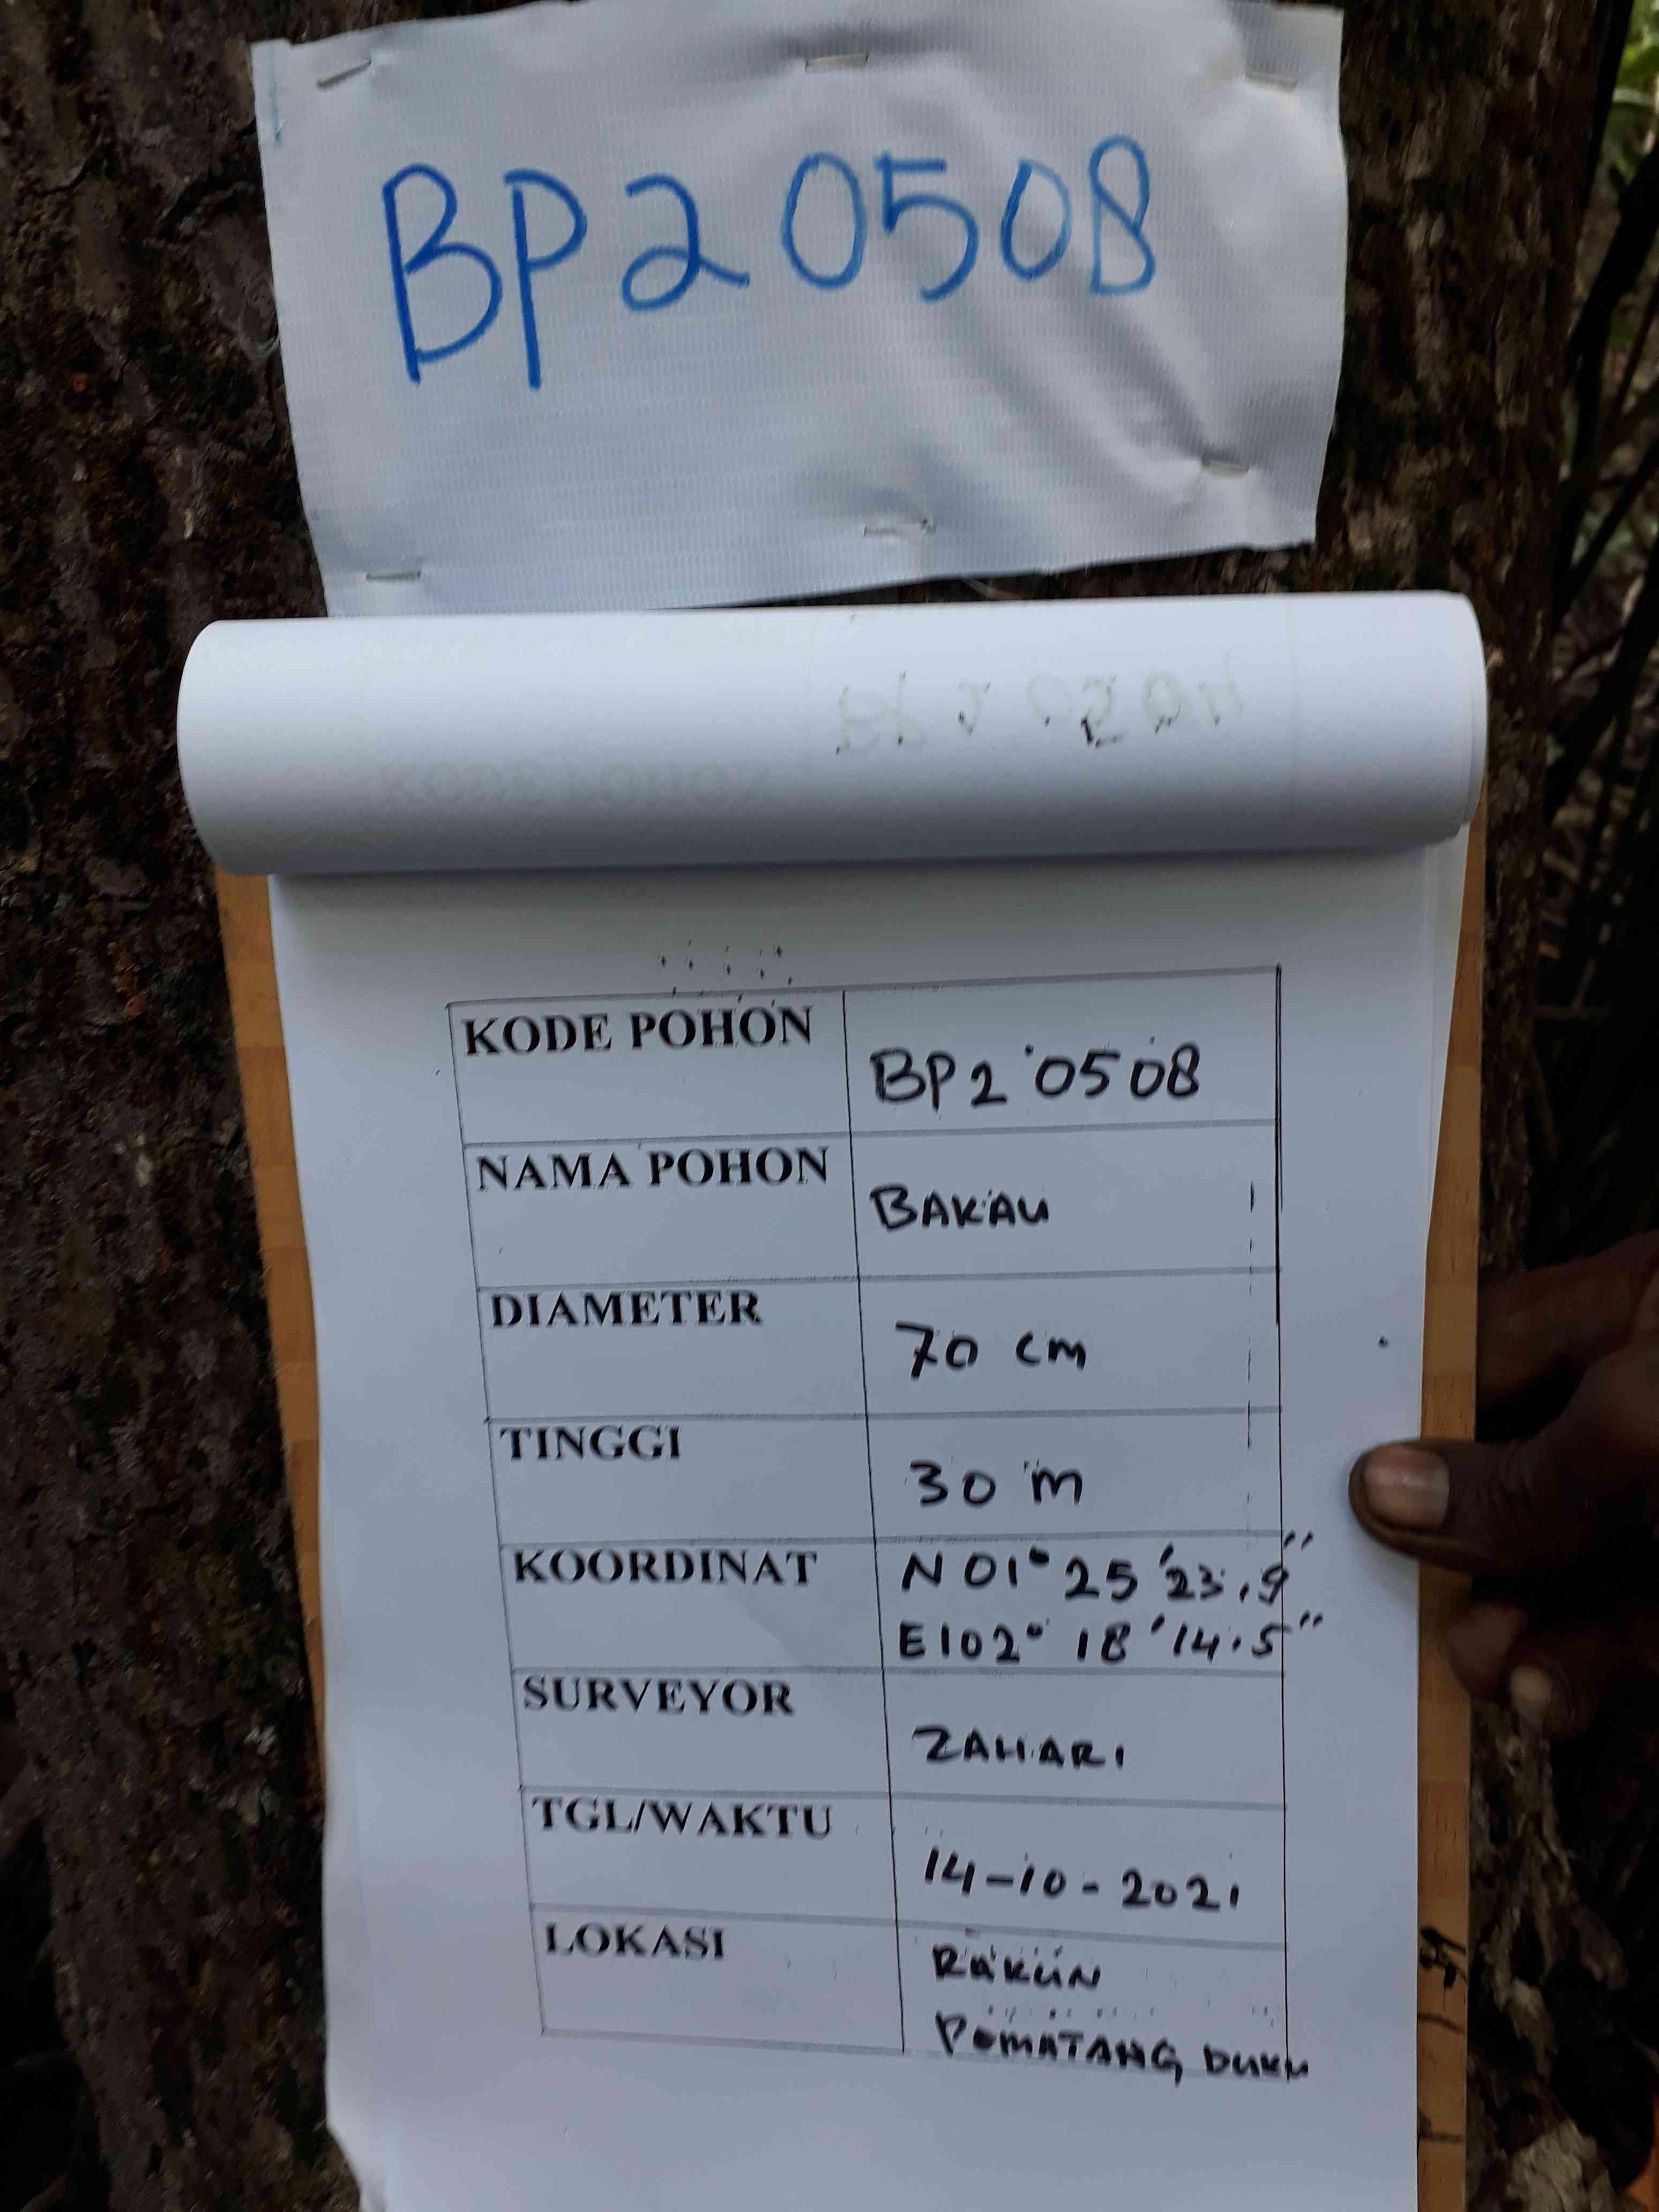 BP2 0508
KODE POHON
BP2 0508
NAMA POHON
BAKAU
DIAMETER
70 cm
TINGGI
30 m
KOORDINAT
N 01° 25 '23,9"
E102° 18 '14.5"
SURVEYOR
ZAHARI
TGL/WAKTU
14-10-2021
LOKASI
PEMATANG DUKU